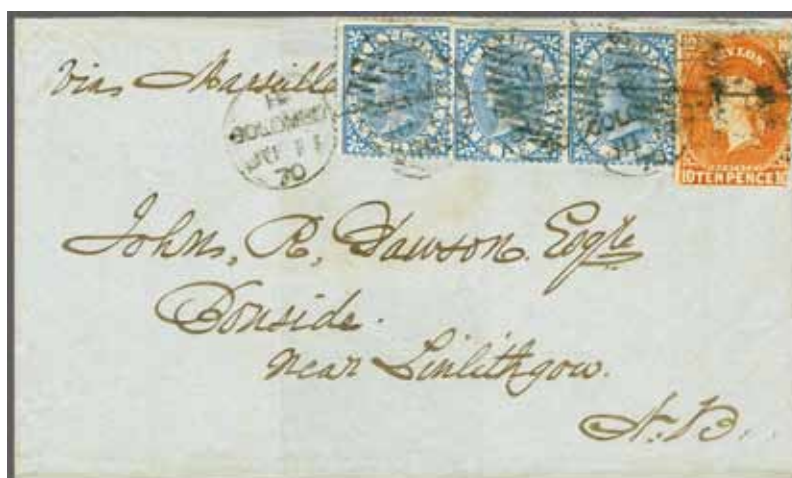 via Marseille
CEYLON
10 TEN PENCE 10
70
John, R, Dawson. Esqre
Bonside.
near Linlithgow.
N.B.